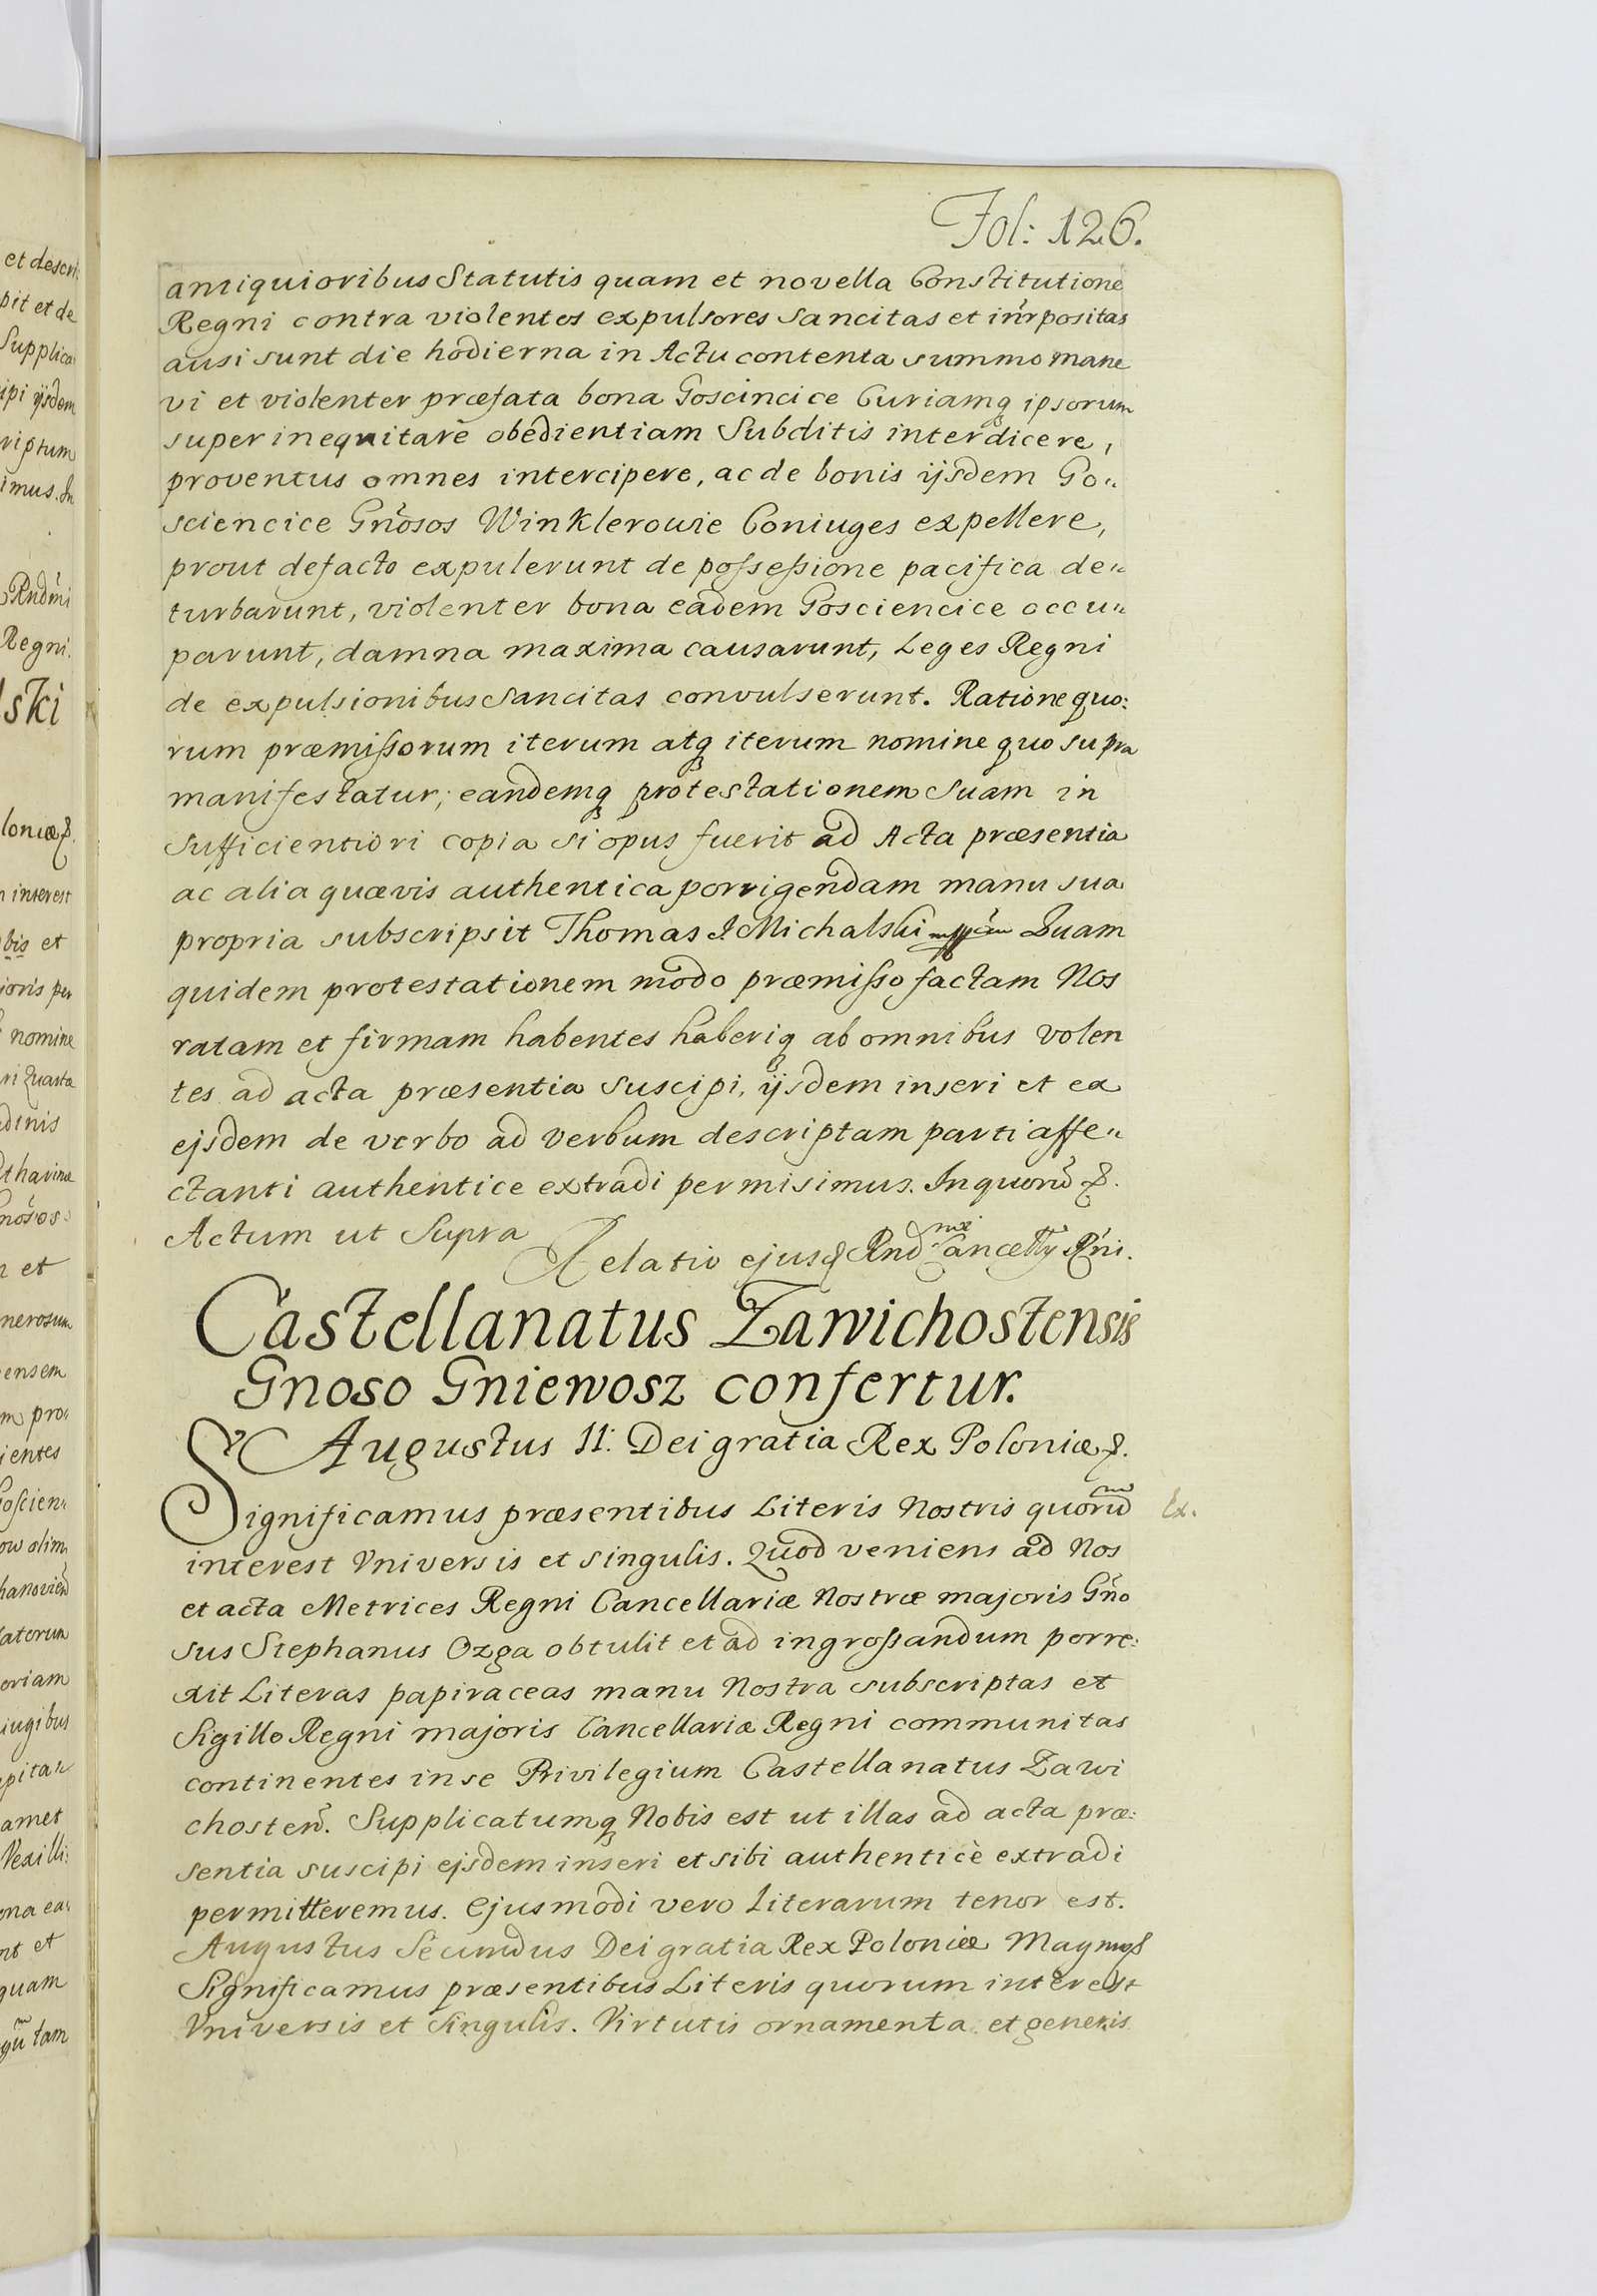 Fol: 126.
antiquioribus Statutis quam et novella Constitutione
Regni contra violentos expulsores sancitas et inr̃positas
ausi sunt die hodierna in Actu contenta summo mane
vi et violenter præfata bona Goscincice Curiamq́ ipsorum
superinequitare obedientiam Subditis interdicere,
proventus omnes intercipere, ac de bonis ijsdem Go„
sciencice Gnõsos Winklerowie Coniuges expellere,
prout defacto expulerunt de possessione pacifica de„
turbarunt, violenter bona eadem Gosciencice occu„
parunt, damna maxima causarunt, Leges Regni
de expulsionibus sancitas convulserunt. Ratione quo:
rum præmissorum iterum atq́ iterum nomine quo supra
manifestatur; eandemq́ protestationem suam in
sufficientiori copia si opus fuerit ad Acta præsentia
ac alia quævis authentica porrigendam manu sua
propria subscripsit Thomas J Michalski mppm Quam
quidem protestationem modo præmisso factam Nos
ratam et firmam habentes haberiq́ ab omnibus volen
tes ad acta præsentia suscipi, ijsdem inseri et ex
ejsdem de verbo ad verbum descriptam parti affe„
ctanti authentice extradi permisimus. In quorũ &.
Actum ut supra
Relatio ejusd Rndmi Cancellij Rñi.
Castellanatus Zawichostensis
Gnoso Gniewosz confertur.
Augustus II. Dei gratia Rex Poloniæ &.
Significamus præsentibus Literis Nostris quorũ
Ex.
interest Vniversis et singulis. Quod veniens ad Nos
et acta Metrices Regni Cancellariæ Nostræ majoris Gño
sus Stephanus Ozga obtulit et ad ingrossandum porre:
xit Literas papiraceas manu Nostra subscriptas et
Sigillo Regni majoris Cancellariæ Regni communitas
continentes in se Privilegium Castellanatus Zawi
chosten̄. Supplicatumq́ Nobis est ut illas ad acta præ:
sentia suscipi ejsdem inseri et sibi authenticè extradi
permitteremus. Ejusmodi vero Literarum tenor est.
Augustus Secundus Dei gratia Rex Poloniæ Magnus
Significamus præsentibus Literis quorum interest
Vniversis et singulis. Virtutis ornamenta et generis